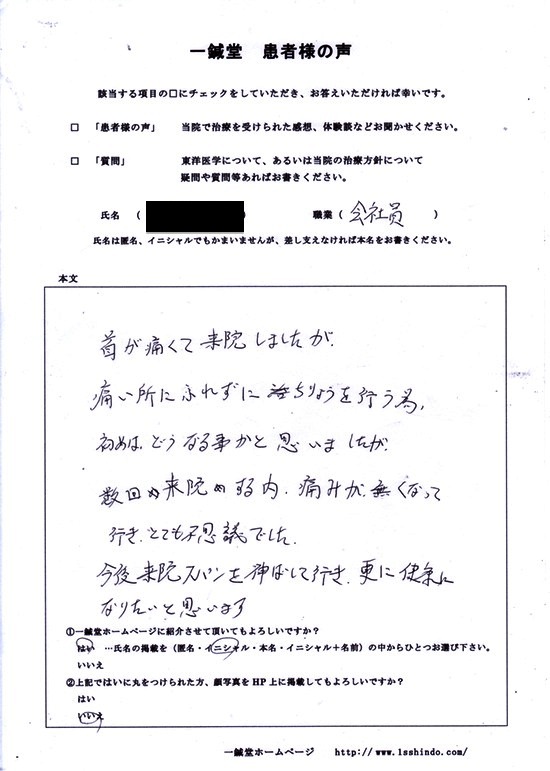 一鍼堂 患者様の声
該当する項目の□にチェックをしていただき、お答えいただければ幸いです。
□ 「患者様の声」 当院で治療を受けられた感想、体験談などお聞かせください。
□ 「質問」 東洋医学について、あるいは当院の治療方針について
疑問や質問等あればお書きください。
氏名 ( ) 職業 ( 会社員 )
氏名は匿名、イニシャルでもかまいませんが、差し支えなければ本名をお書きください。
本文
首が痛くて来院しましたが、
痛い所にふれずにちりょうを行う為、
初めは、どうなる事かと思いましたが、
数回来院する内、痛みが無くなって
行き、とても不思議でした。
今後来院スパンを伸ばして行き、更に健康に
なりたいと思います
①一鍼堂ホームページに紹介させて頂いてもよろしいですか?
はい …氏名の掲載を(匿名・イニシャル・本名・イニシャル+名前)の中からひとつお選び下さい。
いいえ
②上記ではいに丸をつけられた方、顔写真をHP上に掲載してもよろしいですか?
はい
いいえ
一鍼堂ホームページ http://www.1sshindo.com/